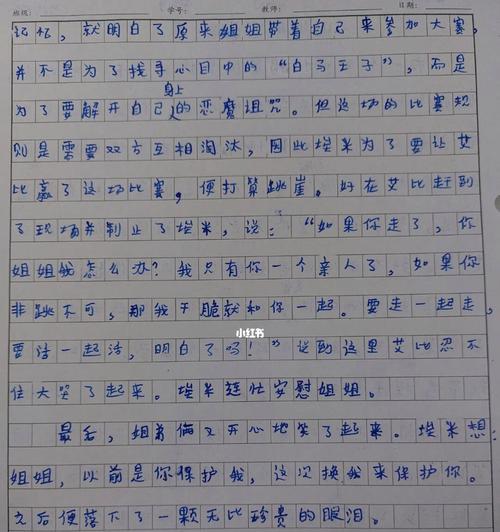 班级： 学号： 教师： 日期：
记忆，就明白了原来姐姐带着自己来参加大赛，
并不是为了找寻心目中的“白马王子”，而是
身上
为了要解开自己的恶魔诅咒。但这场的比赛规
则是需要双方互相淘汰，因此埃米为了要让艾
比赢了这场比赛，便打算跳崖。好在艾比赶到
了现场并制止了埃米，说：“如果你走了，你
姐姐我怎么办？我只有你一个亲人了，如果你
非跳不可，那我干脆就和你一起。要走一起走，
小红书
要活一起活，明白了吗！”说到这里艾比忍不
住大哭了起来。埃米连忙安慰姐姐。
最后，姐弟俩又开心地笑了起来。埃米想：
姐姐，以前是你保护我，这次换我来保护你。
之后便落下了一颗无比珍贵的眼泪。